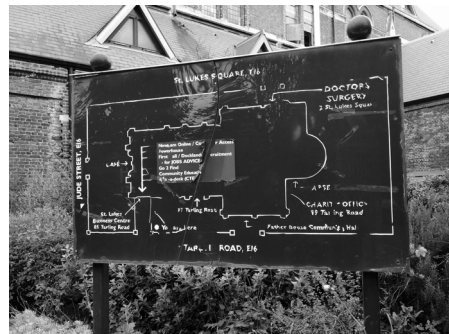 ST. LUKES SQUARE, E16
DOCTOR'S
SURGERY
2 St. Lukes Square
JUDE STREET, E16
Newham Online / Access
Powerhouse
First / Dockland Recruitment
- for JOBS ADVICE
Go 2 Find
Community Education
LADIES
APSE
CHARITY OFFICE
89 Tarling Road
St. Lukes
Business Centre
85 Tarling Road
87 Tarling Road
You are here
Father House Community Hall
ROAD, E16